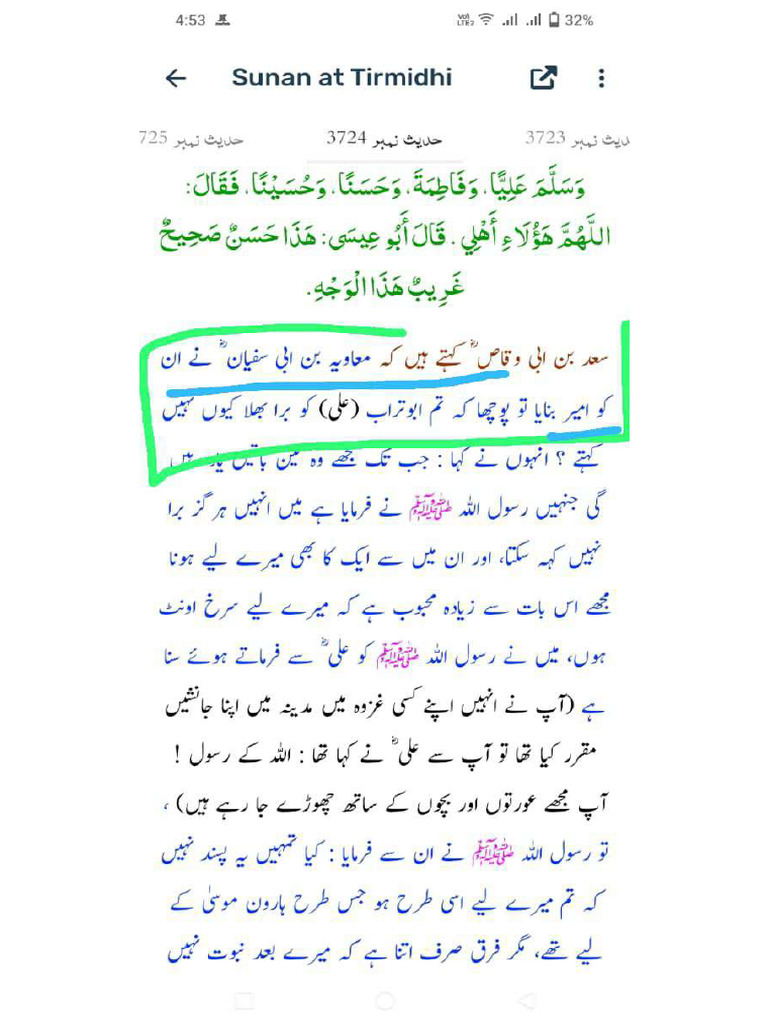 4:53 32%
Sunan at Tirmidhi
حدیث نمبر 3723 حدیث نمبر 3724 حدیث نمبر 725
وَسَلَّمَ عَلِيًّا، وَفَاطِمَةَ، وَحَسَنًا، وَحُسَيْنًا، فَقَالَ:
اللَّهُمَّ هَؤُلَاءِ أَهْلِي. قَالَ أَبُو عِيسَى: هَذَا حَسَنٌ صَحِيحٌ
غَرِيبٌ هَذَا الْوَجْهِ.
سعد بن ابی وقاص ؓ کہتے ہیں کہ معاویہ بن ابی سفیان ؓ نے ان
کو امیر بنایا تو پوچھا کہ تم ابوتراب (علی) کو برا بھلا کیوں نہیں
کہتے ؟ انہوں نے کہا : جب تک مجھے وہ تین باتیں یاد رہیں
گی جنہیں رسول اللہ ﷺ نے فرمایا ہے میں انہیں ہرگز برا
نہیں کہہ سکتا، اور ان میں سے ایک کا بھی میرے لیے ہونا
مجھے اس بات سے زیادہ محبوب ہے کہ میرے لیے سرخ اونٹ
ہوں، میں نے رسول اللہ ﷺ کو علی ؓ سے فرماتے ہوئے سنا
ہے (آپ نے انہیں اپنے کسی غزوہ میں مدینہ میں اپنا جانشیں
مقرر کیا تھا تو آپ سے علی ؓ نے کہا تھا : اللہ کے رسول !
آپ مجھے عورتوں اور بچوں کے ساتھ چھوڑے جا رہے ہیں) ،
تو رسول اللہ ﷺ نے ان سے فرمایا : کیا تمہیں یہ پسند نہیں
کہ تم میرے لیے اسی طرح ہو جس طرح ہارون موسیٰ کے
لیے تھے، مگر فرق صرف اتنا ہے کہ میرے بعد نبوت نہیں